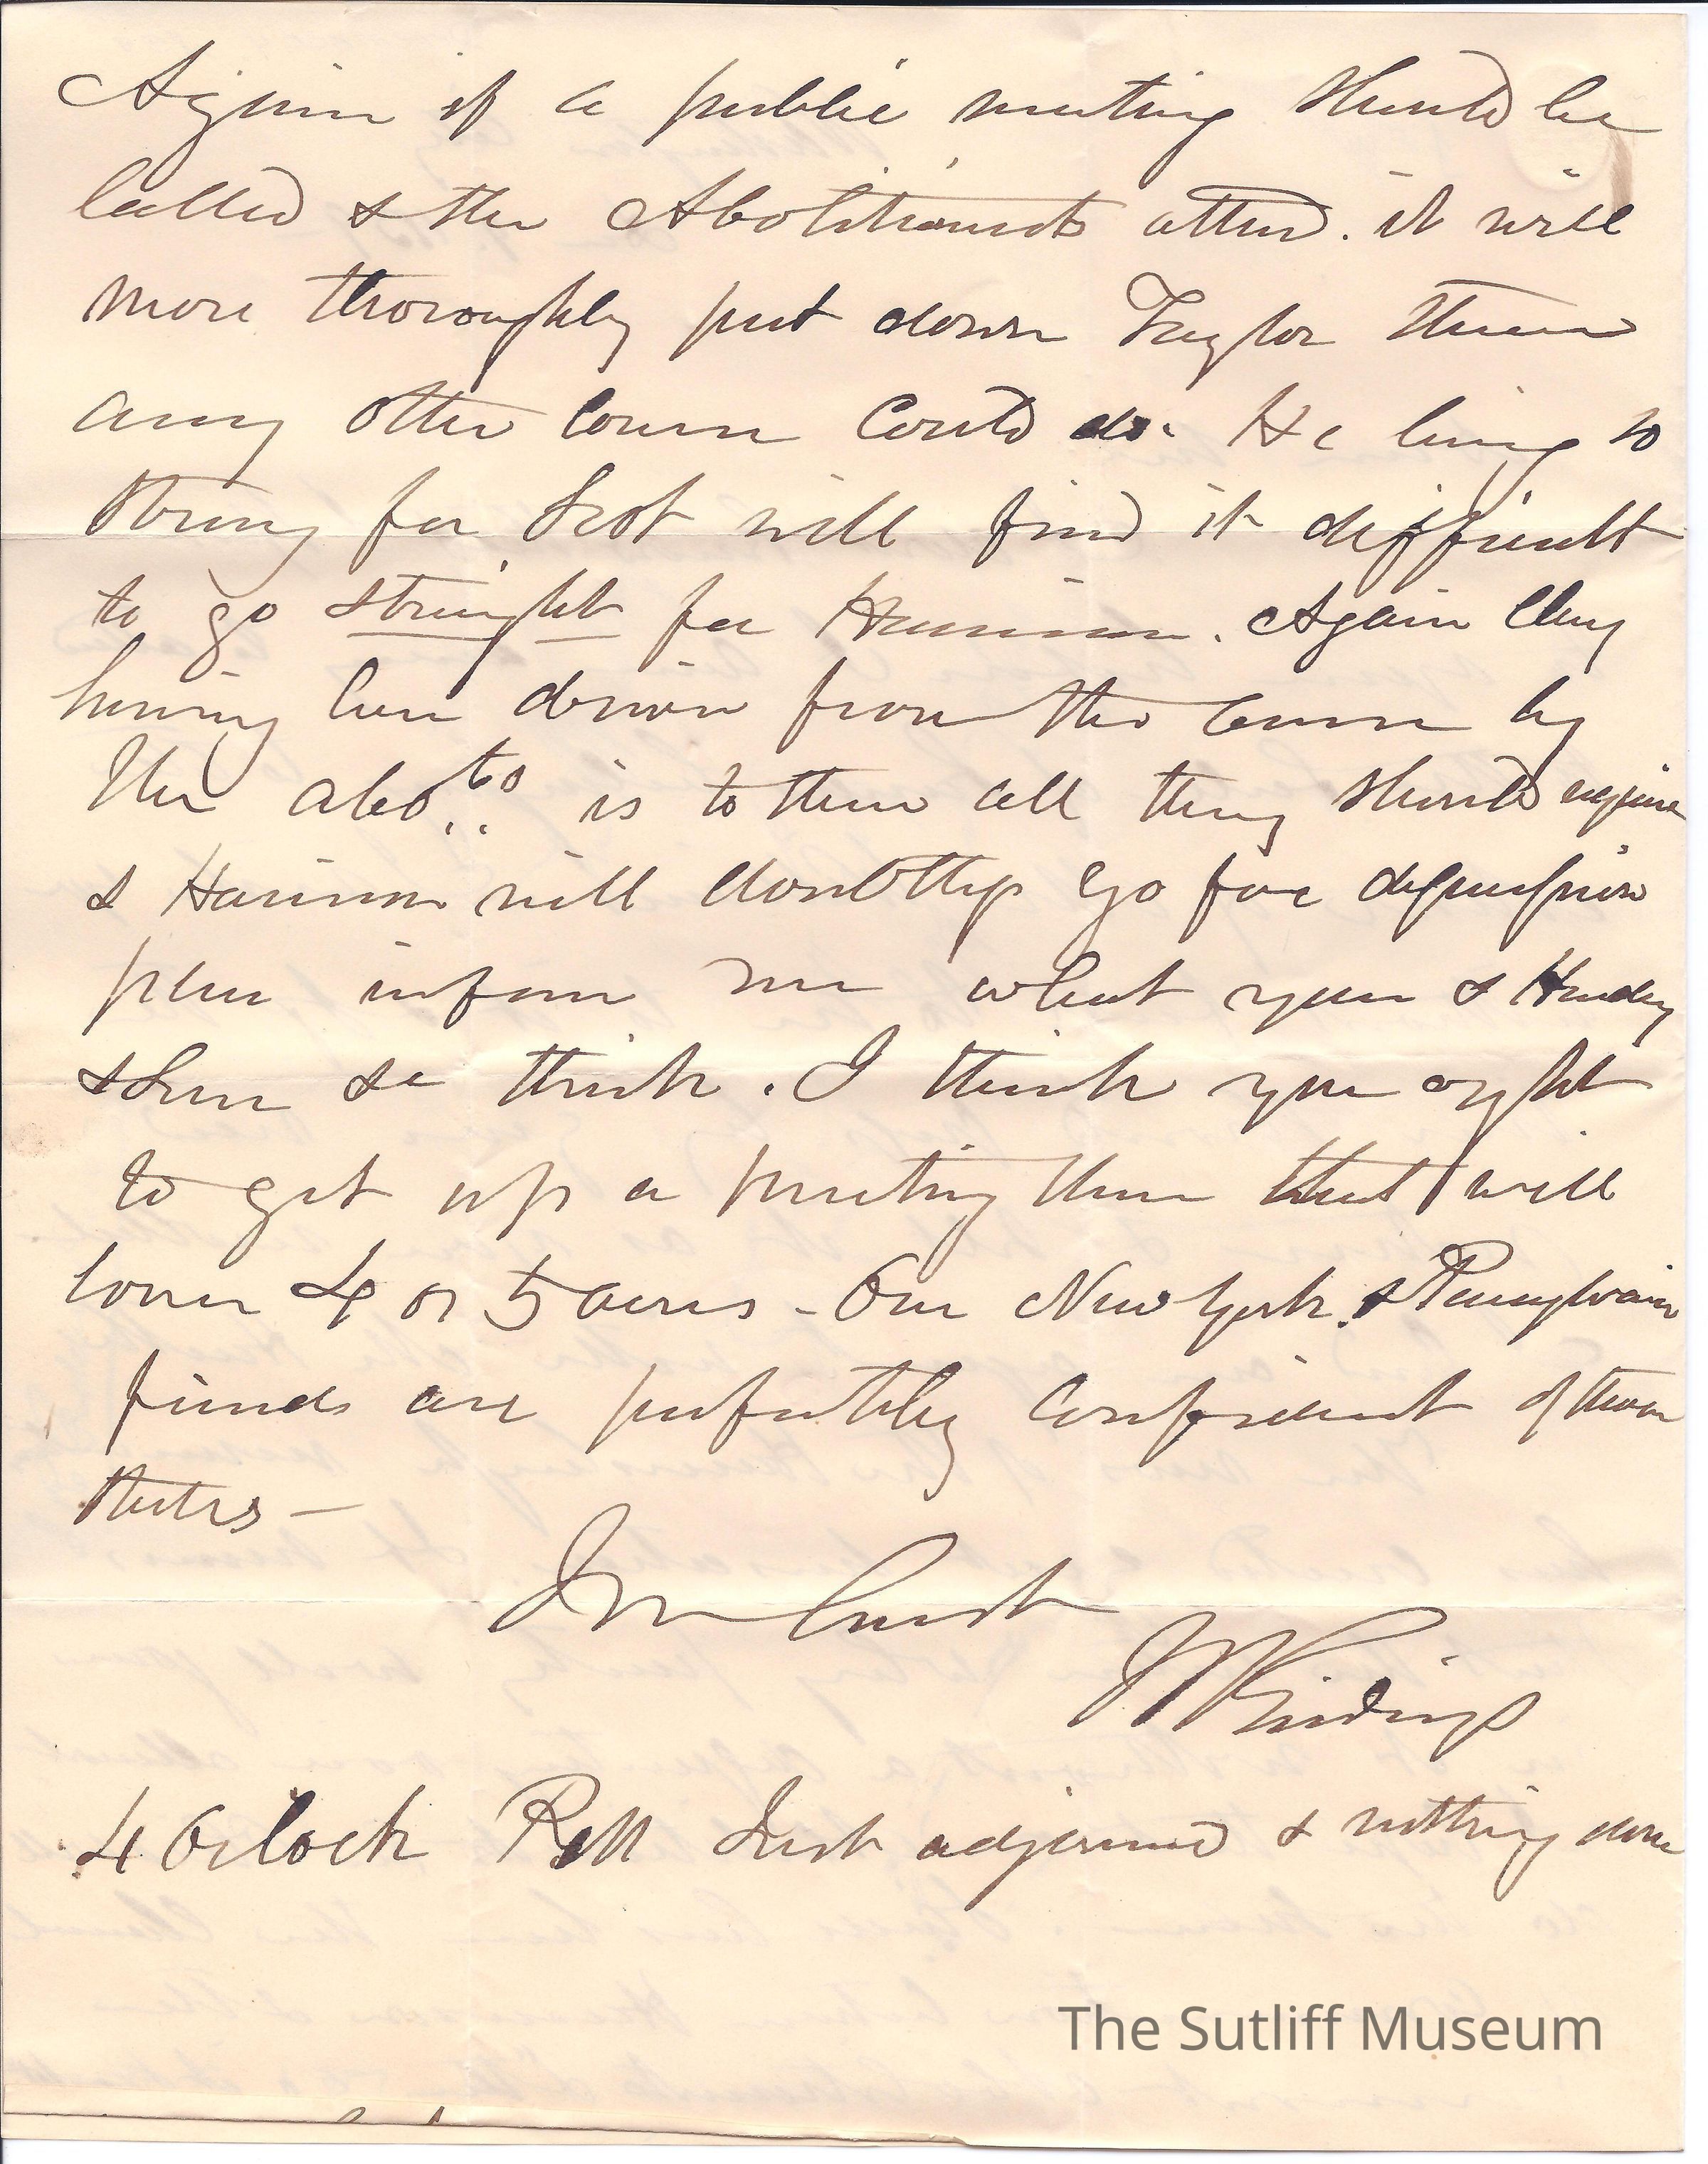 Again if a public meeting should be
called & the Abolitionists attend. it will
more thoroughly put down Taylor than
any other course could do. He being so
strong for Scot will find it difficult
to go straight for Harrison. Again Clay
having been driven from the course by
the abo.ts is to them all they should require
& Harrison will doubtless go for
please inform me what you &
& think. I think you ought
to get up a meeting there that will
cover 4 or 5 acres - Our New York & Pennsylvain
friends are perfectly confident of those
States -
In haste
JR Giddings
4 Oclock PM Just adjourned & nothing done
The Sutliff Museum